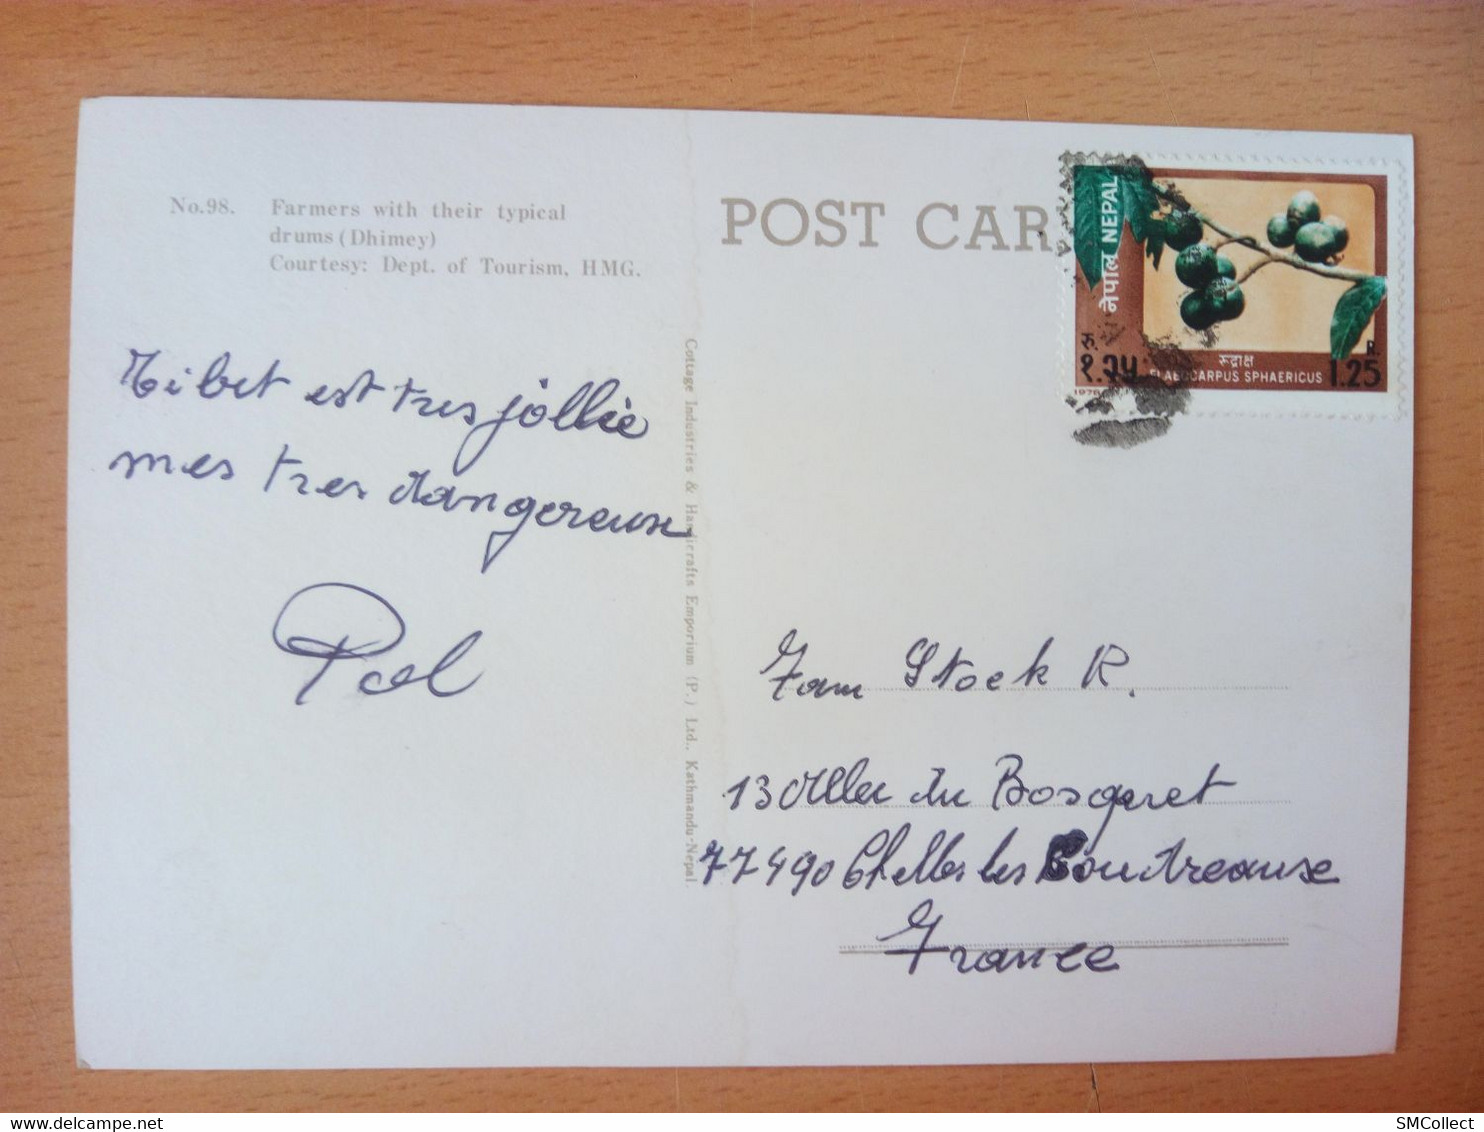 No.98. Farmers with their typical
drums (Dhimey)
Courtesy: Dept. of Tourism, HMG.
Tibet est tres jollie
mes tres dangereuse
Pol
Cottage Industries & Handicrafts Emporium (P.) Ltd., Kathmandu-Nepal
POST CAR
नेपाल NEPAL
रु. १.२५
रूद्राक्ष
ELAEOCARPUS SPHAERICUS
R. 1.25
Fam Stock R.
13 Allee du Bosgaret
77490 Chelles les Coudreause
France
SMCollect